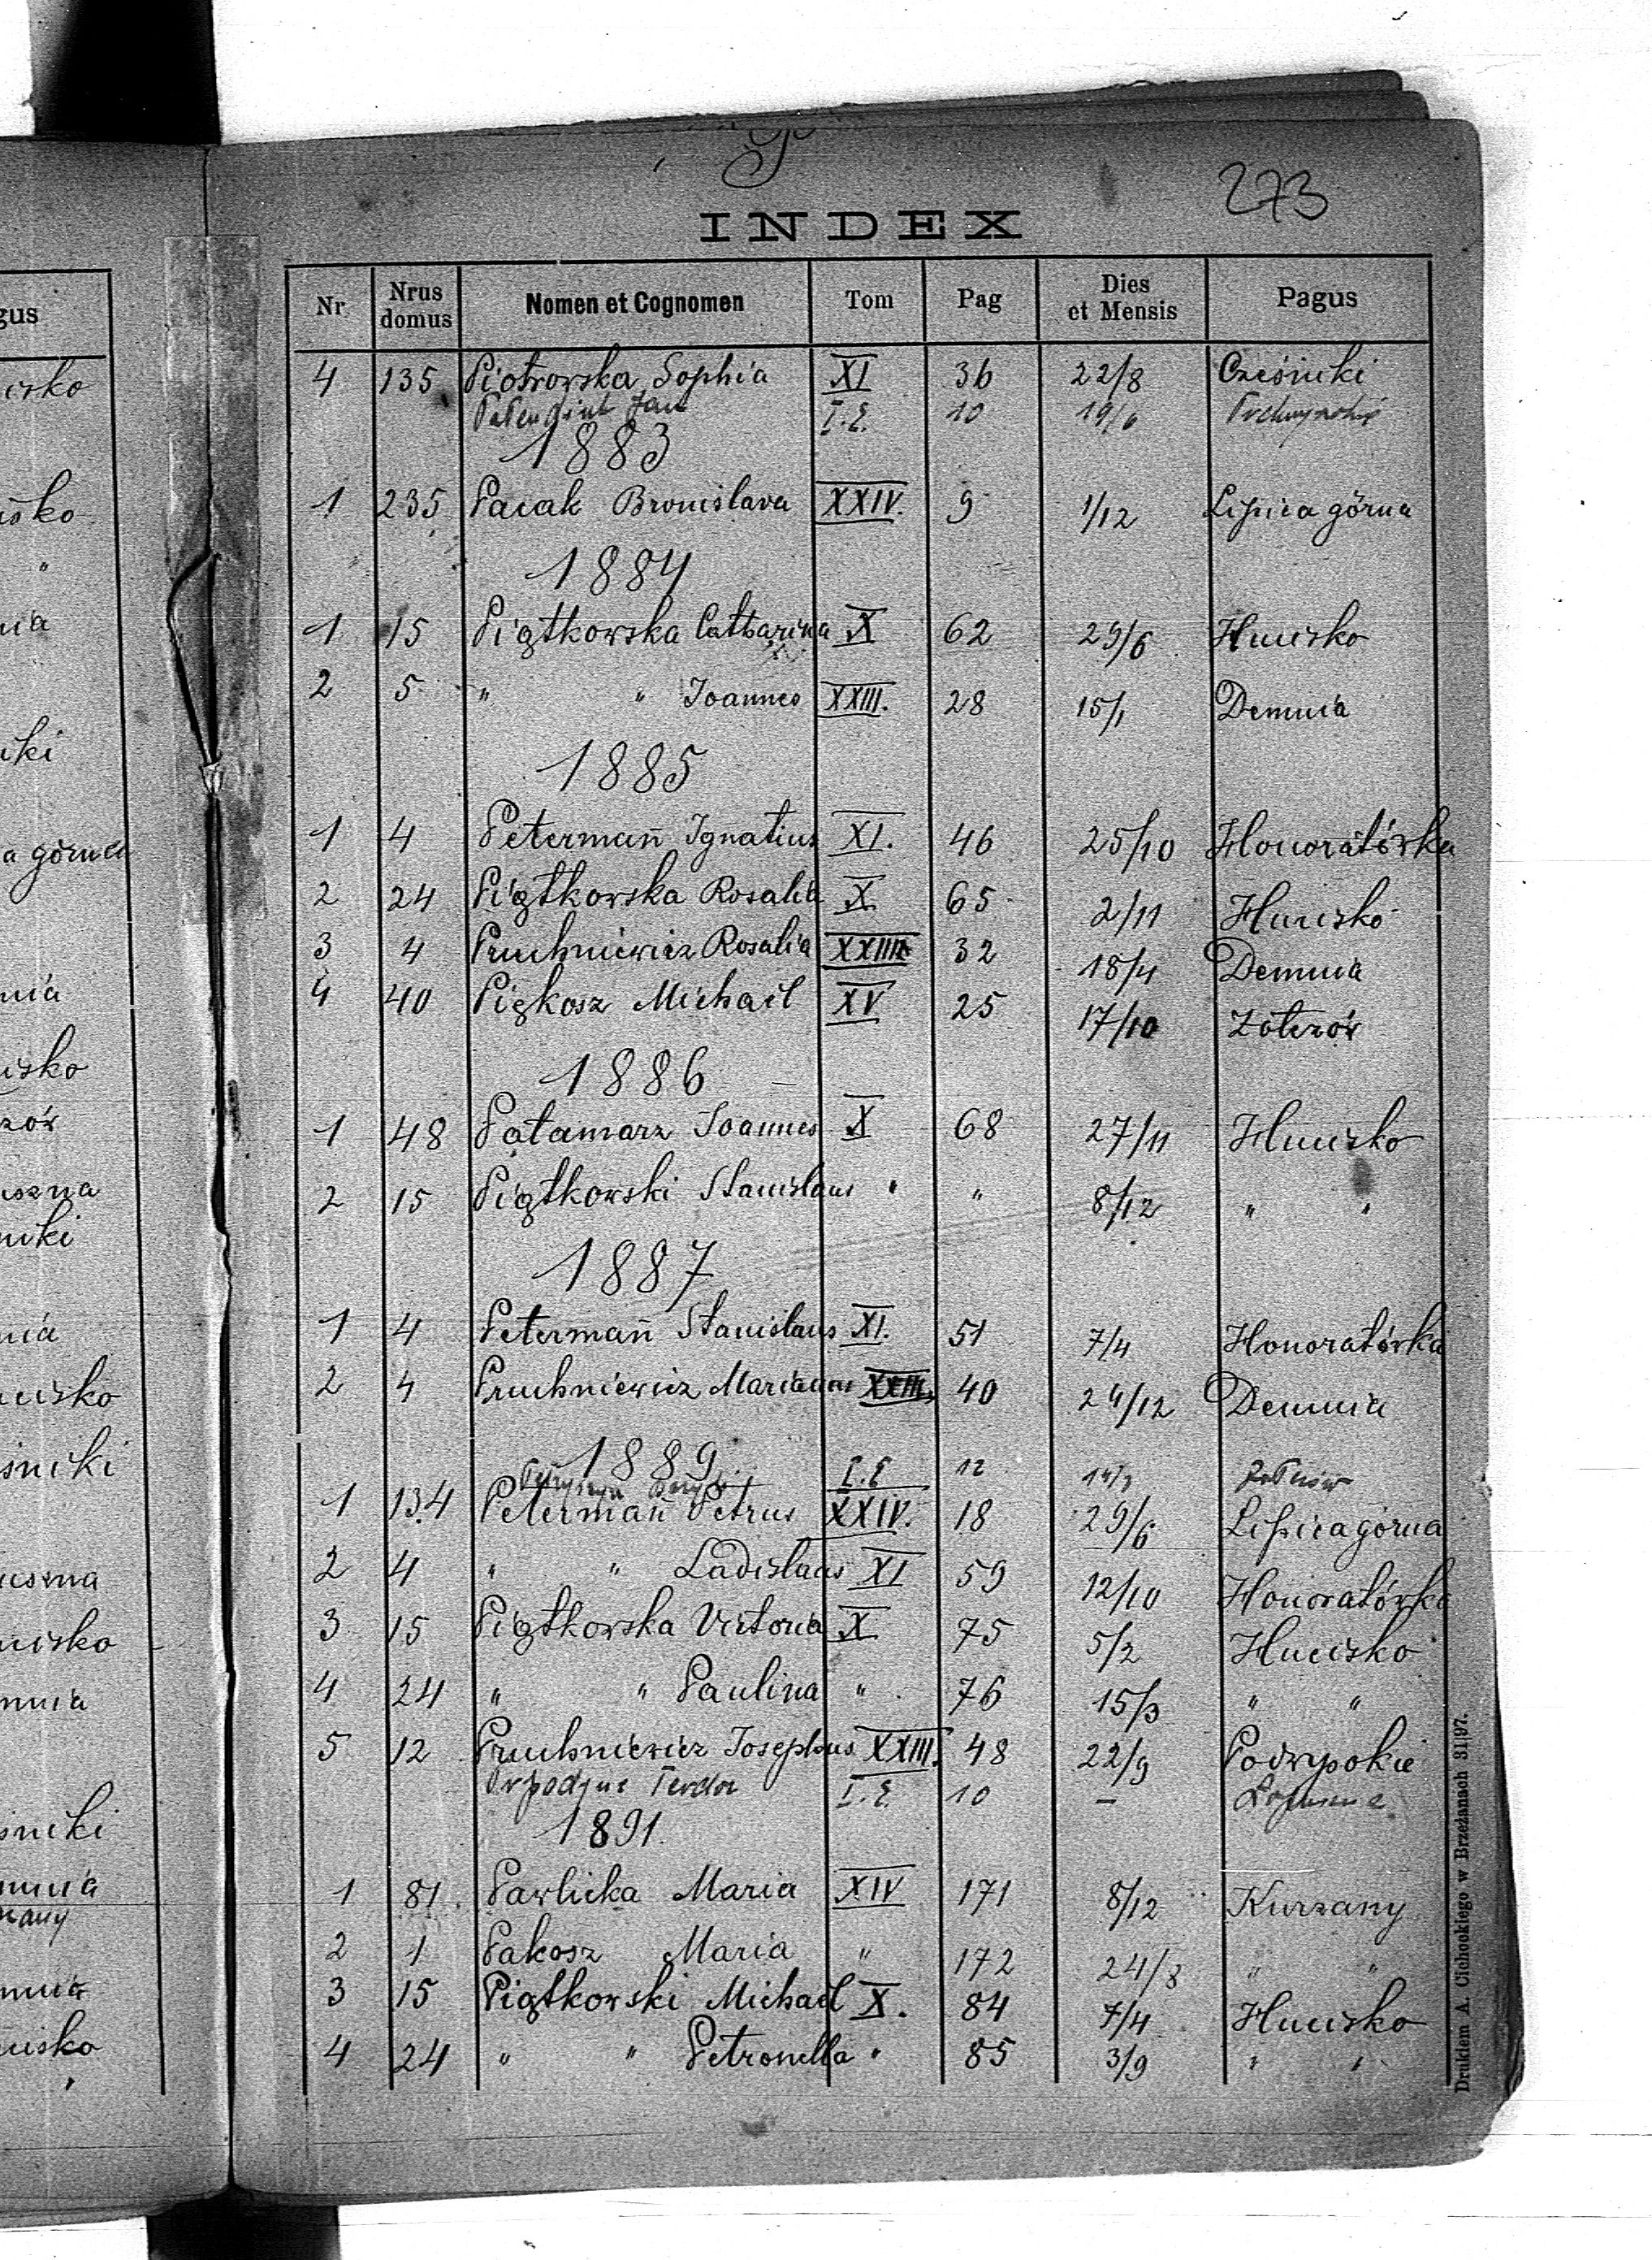 P
273
INDEX
gus
Nr Nrus domus Nomen et Cognomen Tom Pag Dies et Mensis Pagus
4 135 Piotrowska Sophia XI 36 22/8 Cześniki
Jan I.E. 10 19/6
1883
1 235 Pacak Bronislava XXIV. 9 1/12 Lipica górna
1884
1 15 Piątkowska Catharina X 62 29/6 Hucisko
2 5 " " Joannes XXIII. 28 15/1 Demnia
1885
1 4 Petermañ Ignatius XI. 46 25/10 Honoratówka
2 24 Piątkowska Rosalia X 65 2/11 Hucisko
3 4 Pruchniewicz Rosalia XXIII 32 18/4 Demnia
4 40 Piękosz Michael XV 25 17/10 Żółczów
1886
1 48 Patamarz Joannes X 68 27/11 Hucisko
2 15 Piątkowski Stanislaus " " 8/12 " "
1887
1 4 Petermañ Stanislaus XI. 51 7/4 Honoratówka
2 4 Pruchniewicz Marianna XXIII. 40 24/12 Demnia
1889
I.E 12
1 134 Petermañ Petrus XXIV. 18 29/6 Lipica górna
2 4 " " Ladislaus XI 59 12/10 Honoratówka
3 15 Piątkowska Victoria X 75 5/2 Hucisko
4 24 " " Paulina " 76 15/3 " "
5 12 Pruchniewicz Josephus XXIII. 48 22/9 Podwysokie
I.E. 10 –
1891.
1 81 Pawlicka Maria XIV 171 8/12 Kurzany
2 1 Pakosz Maria " 172 24/8 " "
3 15 Piątkowski Michael X. 84 7/4 Hucisko
4 24 " " Petronella " 85 3/9 " "
Drukiem A. Cichockiego w Brzeżanach 31|97.